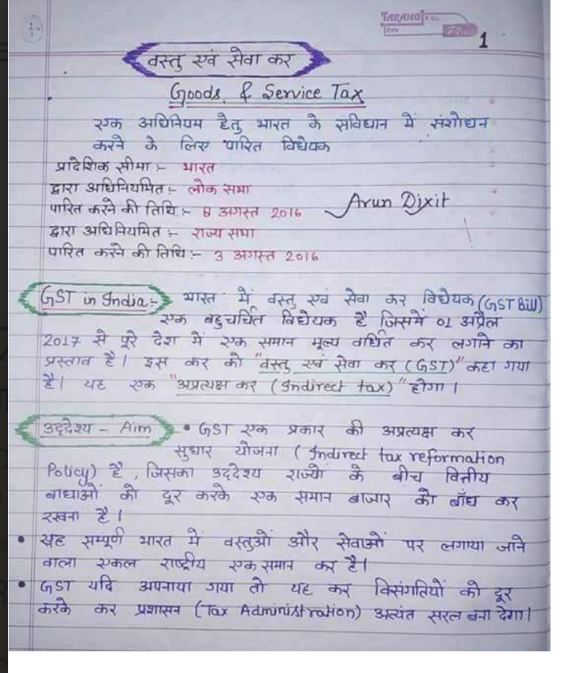 TARANG
1
वस्तु एवं सेवा कर
Goods & Service Tax
एक अधिनियम हेतु भारत के संविधान में संशोधन
करने के लिए पारित विधेयक
प्रादेशिक सीमा :- भारत
द्वारा अधिनियमित :- लोक सभा
पारित करने की तिथि :- 8 अगस्त 2016
Arun Dixit
द्वारा अधिनियमित :- राज्य सभा
पारित करने की तिथि :- 3 अगस्त 2016
GST in India :- भारत में वस्तु एवं सेवा कर विधेयक (GST Bill)
एक बहुचर्चित विधेयक है जिसमें 01 अप्रैल
2017 से पूरे देश में एक समान मूल्य वर्धित कर लगाने का
प्रस्ताव है। इस कर को "वस्तु एवं सेवा कर (GST)" कहा गया
है। यह एक "अप्रत्यक्ष कर (Indirect tax)" होगा।
उद्देश्य - Aim • GST एक प्रकार की अप्रत्यक्ष कर
सुधार योजना (Indirect tax reformation
Policy) है, जिसका उद्देश्य राज्यों के बीच वित्तीय
बाधाओं को दूर करके एक समान बाजार को बाँध कर
रखना है।
• यह सम्पूर्ण भारत में वस्तुओं और सेवाओं पर लगाया जाने
वाला एकल राष्ट्रीय एकसमान कर है।
• GST यदि अपनाया गया तो यह कर विसंगतियों को दूर
करके कर प्रशासन (Tax Administration) अत्यंत सरल बना देगा।